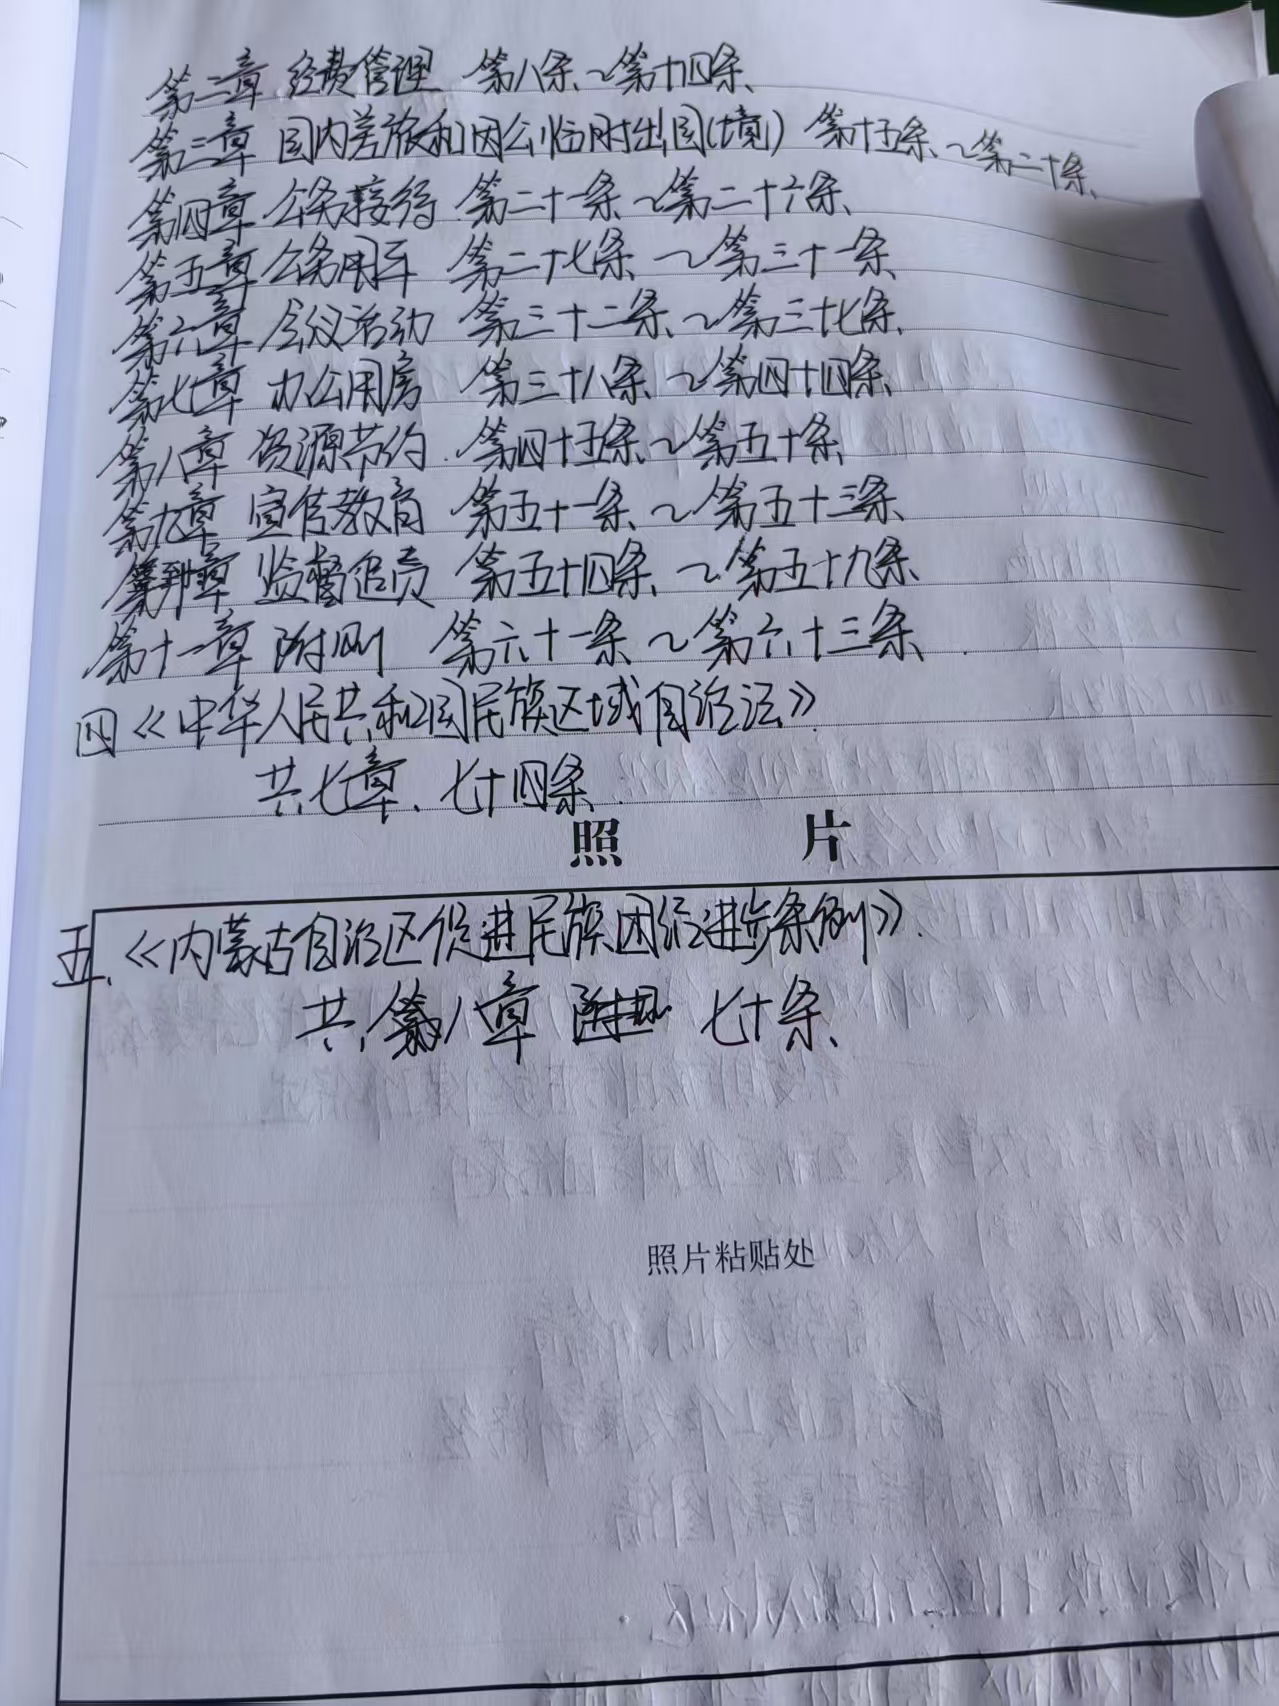 第二章 经费管理 第八条~第十四条
第三章 国内差旅和因公临时出国(境) 第十五条~第二十条
第四章 公务接待 第二十一条~第二十六条
第五章 公务用车 第二十七条~第三十一条
第六章 会议活动 第三十二条~第三十七条
第七章 办公用房 第三十八条~第四十四条
第八章 资源节约 第四十五条~第五十条
第九章 宣传教育 第五十一条~第五十三条
第十章 监督追责 第五十四条~第五十九条
第十一章 附则 第六十一条~第六十三条
四《中华人民共和国民族区域自治法》
共七章、七十四条
照 片
五、《内蒙古自治区促进民族团结进步条例》
共 八章 七十条
照片粘贴处